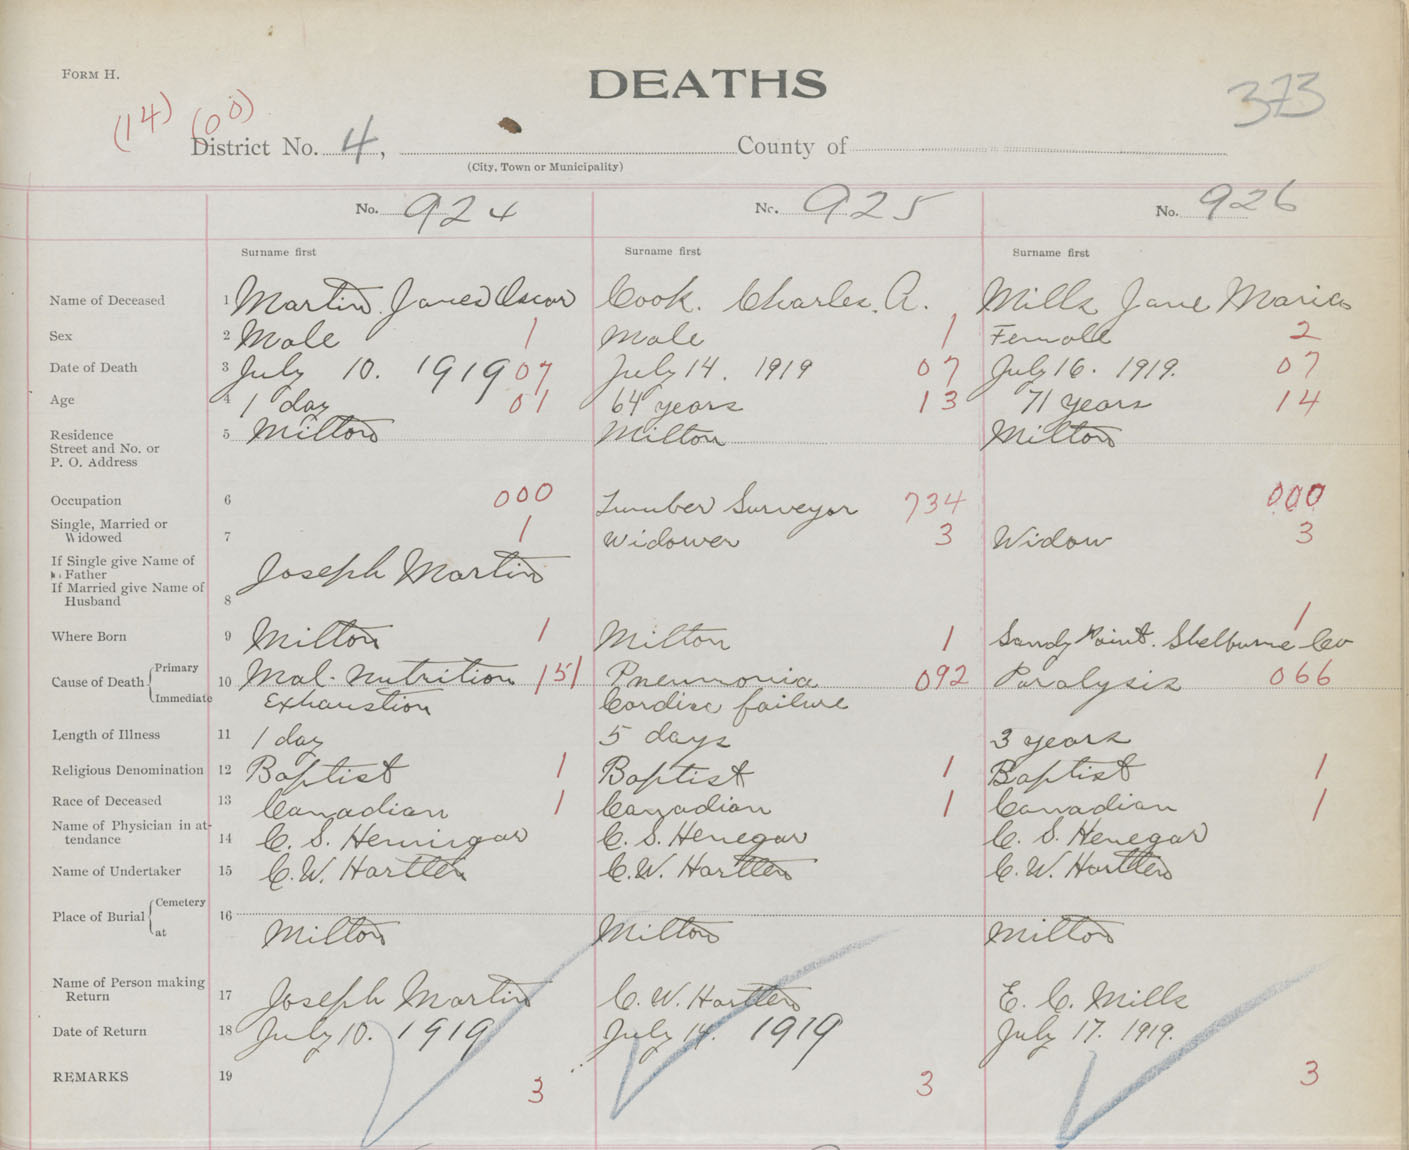 FORM H.
DEATHS
373
(14) (00)
District No. 4, County of
(City, Town or Municipality)
No. 924 No. 925 No. 926
Surname first Surname first Surname first
Name of Deceased 1 Martin. James Oscar Cook. Charles. A. Mills Jane Maria
Sex 2 Male 1 Male 1 Female 2
Date of Death 3 July 10. 1919 07 July 14. 1919 07 July 16. 1919. 07
Age 4 1 day 01 64 years 13 71 years 14
Residence 5 Milton Milton Milton
Street and No. or
P. O. Address
Occupation 6 000 Lumber Surveyor 734 000
Single, Married or
Widowed 7 1 Widower 3 Widow 3
If Single give Name of
Father Joseph Martin
If Married give Name of
Husband 8
Where Born 9 Milton 1 Milton 1 Sandy Point. Shelburne Co 1
Cause of Death Primary 10 Mal-nutrition 151 Pneumonia 092 Paralysis 066
Immediate Exhaustion Cardiac failure
Length of Illness 11 1 day 5 days 3 years
Religious Denomination 12 Baptist 1 Baptist 1 Baptist 1
Race of Deceased 13 Canadian 1 Canadian 1 Canadian 1
Name of Physician in at-
tendance 14 C. S. Hennigar C. S. Henegar C. S. Henegar
Name of Undertaker 15 C. W. Hartlen C. W. Hartlen C. W. Hartlen
Place of Burial Cemetery 16
at Milton Milton Milton
Name of Person making
Return 17 Joseph Martin C. W. Hartlen E. C. Mills
Date of Return 18 July 10. 1919 July 14. 1919 July 17. 1919.
REMARKS 19 3 3 3